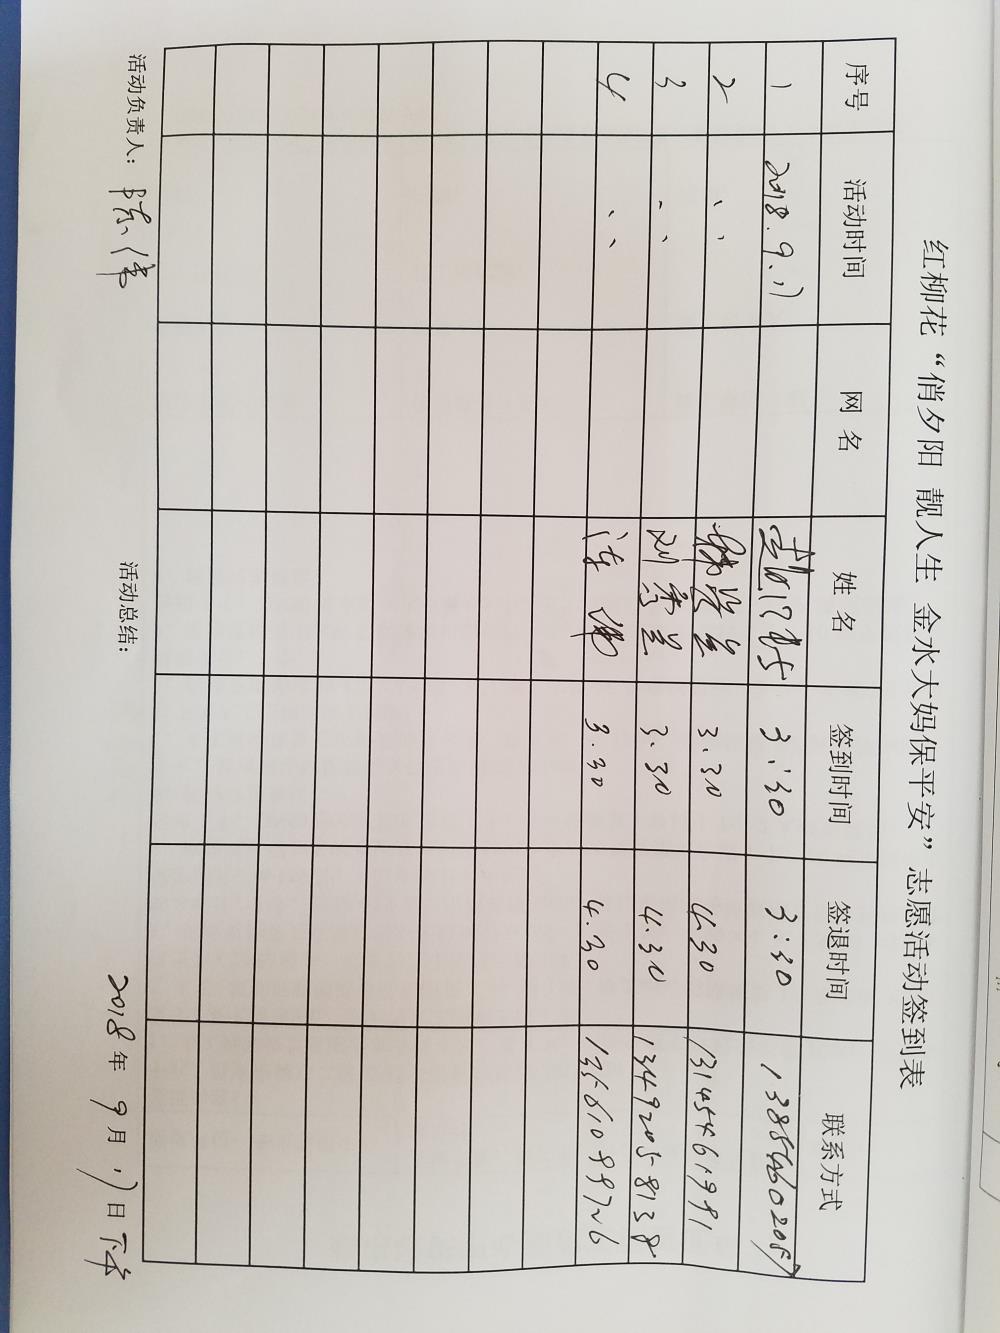 红柳花“俏夕阳 靓人生 金水大妈保平安”志愿活动签到表
序号 活动时间 网 名 姓 名 签到时间 签退时间 联系方式
1 2018.9.17 3:30 3:30
2 〃 3.30 4.30 13145461991
3 〃 刘秀兰 3.30 4.30 13492058138
4 〃 3.30 4.30 13561099726
活动负责人：陈伟 活动总结： 2018年9月17日下午